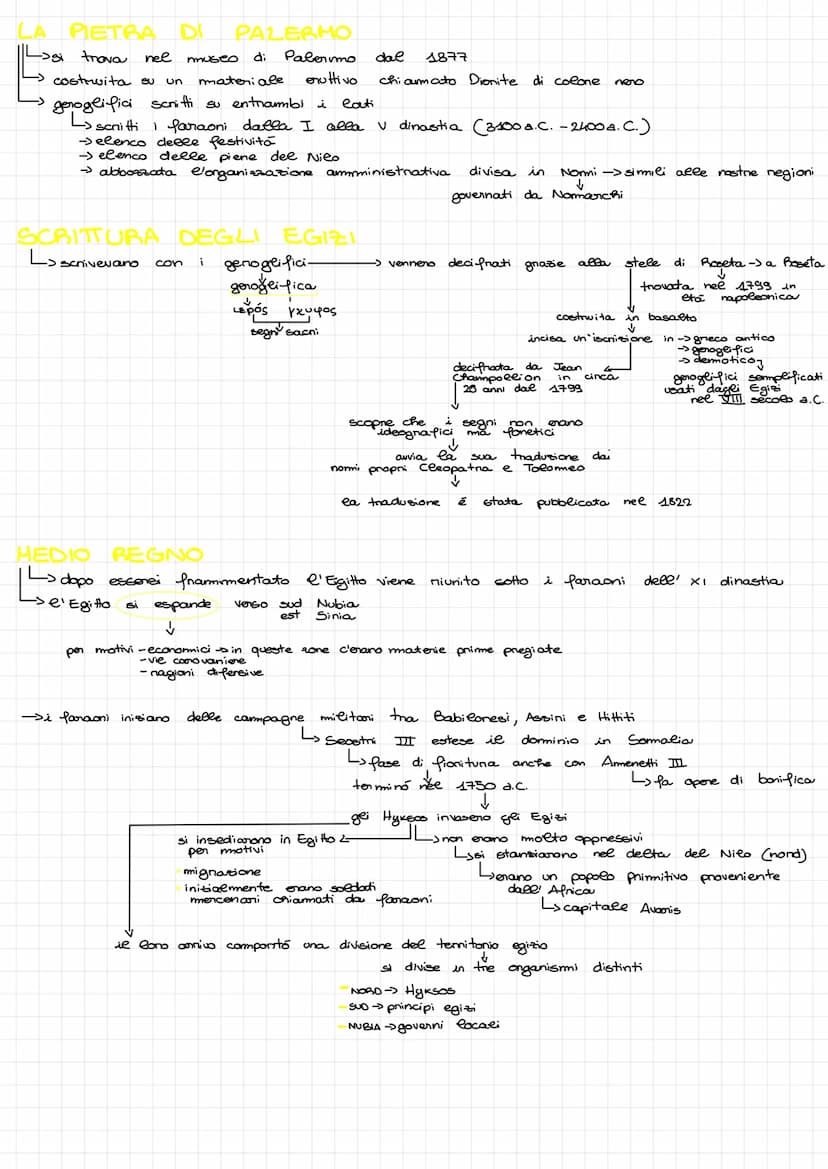 LA PIETRA DI PALERMO
→ si trova nel museo di Palermo dal 1877
→ costruita su un materiale eruttivo chiamato Diorite di colore nero
→ geroglifici scritti su entrambi i lati
→ scritti i faraoni dalla I alla V dinastia (3100 a.C. - 2400 a.C.)
→ elenco delle festività
→ elenco delle piene del Nilo
→ abbozzata l'organizzazione amministrativa divisa in Nomi → simili alle nostre regioni
governati da Nomarchi
SCRITTURA DEGLI EGIZI
→ scrivevano con i geroglifici → vennero decifrati grazie alla stele di Roseta → a Roseta
geroglifica
trovata nel 1799 in
età napoleonica
ιερός γλυφος
segni sacri
costruita in basalto
incisa un'iscrizione in → greco antico
→ geroglifici
→ demotico
geroglifici semplificati
usati dagli Egizi
nel VIII secolo a.C.
decifrata da Jean
Champollion in circa
20 anni dal 1799
scopre che i segni non erano
ideografici ma fonetici
avvia la sua traduzione dai
nomi propri Cleopatra e Tolomeo
la traduzione è stata pubblicata nel 1822
MEDIO REGNO
→ dopo essersi frammentato l'Egitto viene riunito sotto i faraoni dell' XI dinastia
→ l'Egitto si espande verso sud Nubia
est Sinia
per motivi - economici → in queste zone c'erano materie prime pregiate
- vie carovaniere
- ragioni difensive
→ i faraoni iniziano delle campagne militari tra Babilonesi, Assiri e Hittiti
→ Sesostri III estese il dominio in Somalia
→ fase di fioritura anche con Amenetti III
terminò nel 1750 a.C.
→ fa opere di bonifica
gli Hyksos invasero gli Egizi
si insediarono in Egitto
per motivi
migrazione
inizialmente erano soldati
mercenari chiamati da faraoni
→ non erano molto oppressivi
→ si stanziarono nel delta del Nilo (nord)
→ erano un popolo primitivo proveniente
dall' Africa
→ capitale Avaris
il loro arrivo comportò una divisione del territorio egizio
si divise in tre organismi distinti
- NORD → Hyksos
- SUD → principi egizi
- NUBIA → governi locali